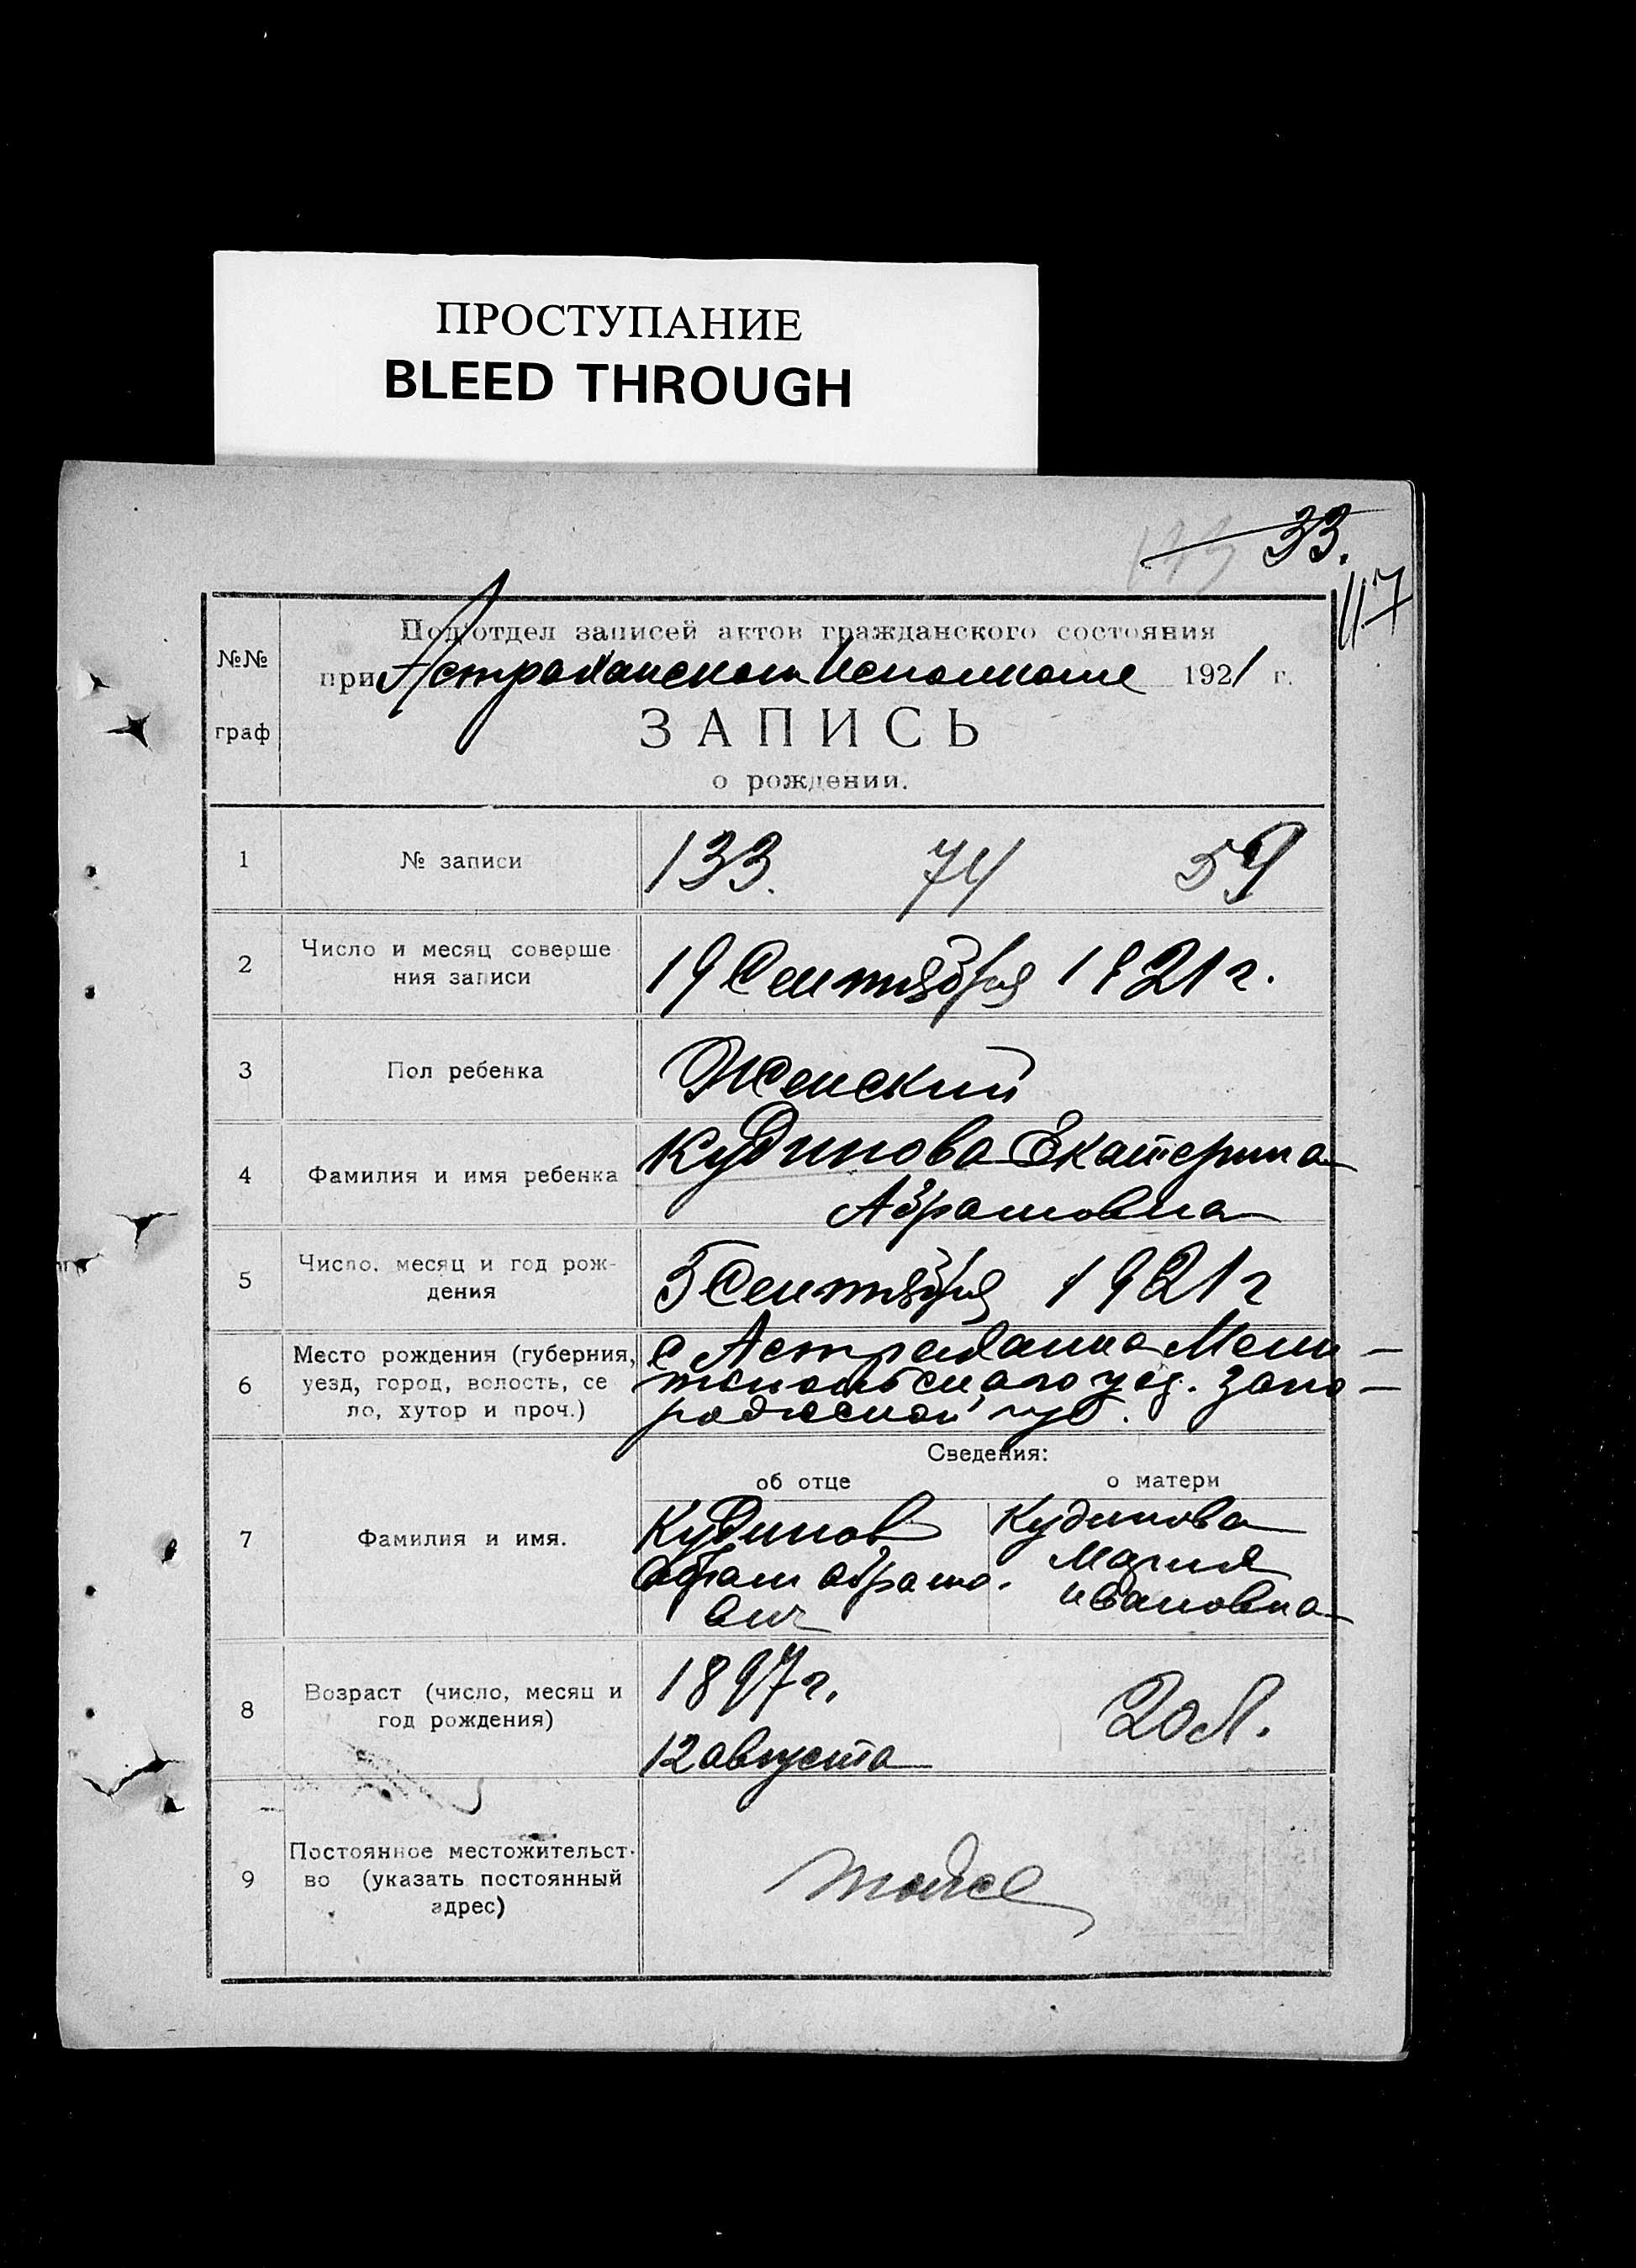 ПРОСТУПАНИЕ
BLEED THROUGH
33.
117
№№ граф
Подотдел записей актов гражданского состояния
при Астраханском Исполкоме 1921 г.
ЗАПИСЬ
о рождении.
1 № записи 133. 74 59
2 Число и месяц соверше
ния записи 19 Сентября 1921 г.
3 Пол ребенка Женский
4 Фамилия и имя ребенка Кудинова Екатерина
Абрамовна
5 Число, месяц и год рож-
дения 5 Сентября 1921 г
6 Место рождения (губерния,
уезд, город, волость, се
ло, хутор и проч.)
с Астраханка Мели-
топольского уез. Запо-
рожской губ.
Сведения:
об отце о матери
7 Фамилия и имя.
Кудинов
Абрам Абрамо.
вич
Кудинова
Мария
Ивановна
8 Возраст (число, месяц и
год рождения)
1897 г.
12 августа
20 л.
9 Постоянное местожительст-
во (указать постоянный
адрес)
тоже